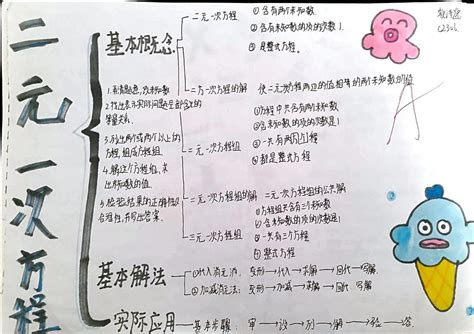 二元一次方程
基本概念
二元一次方程
① 含有两个未知数
② 含有未知数的项的次数1
③ 是整式方程
二元一次方程的解
使二元一次方程两边的值相等的两个未知数的值
二元一次方程组
①方程中共含有两个未知数
②含未知数的项的次数是1
③一共有两个方程
④都是整式方程
二元一次方程组的解
二元一次方程组的公共解
三元一次方程组
①方程组共含有三个未知数
②含未知数的项的次数是1
③一共有三个方程
④整式方程
3.列出两个或两个以上的
方程,组成方程组
4.解这个方程组,求
出未知数的值.
5.检验结果的正确性及
合理性,并写出答案.
基本解法
①代入消元法:
变形→代入→求解→回代→写解
② 加减消元法:
变形→加减→求解→回代→写解
实际应用
基本步骤:
审→设→列→解→验→答
A